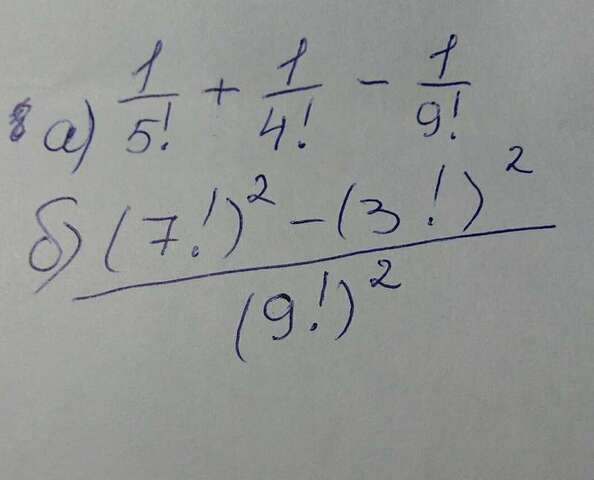 а) 1/5! + 1/4! - 1/9!
б) (7!)² - (3!)²
(9!)²